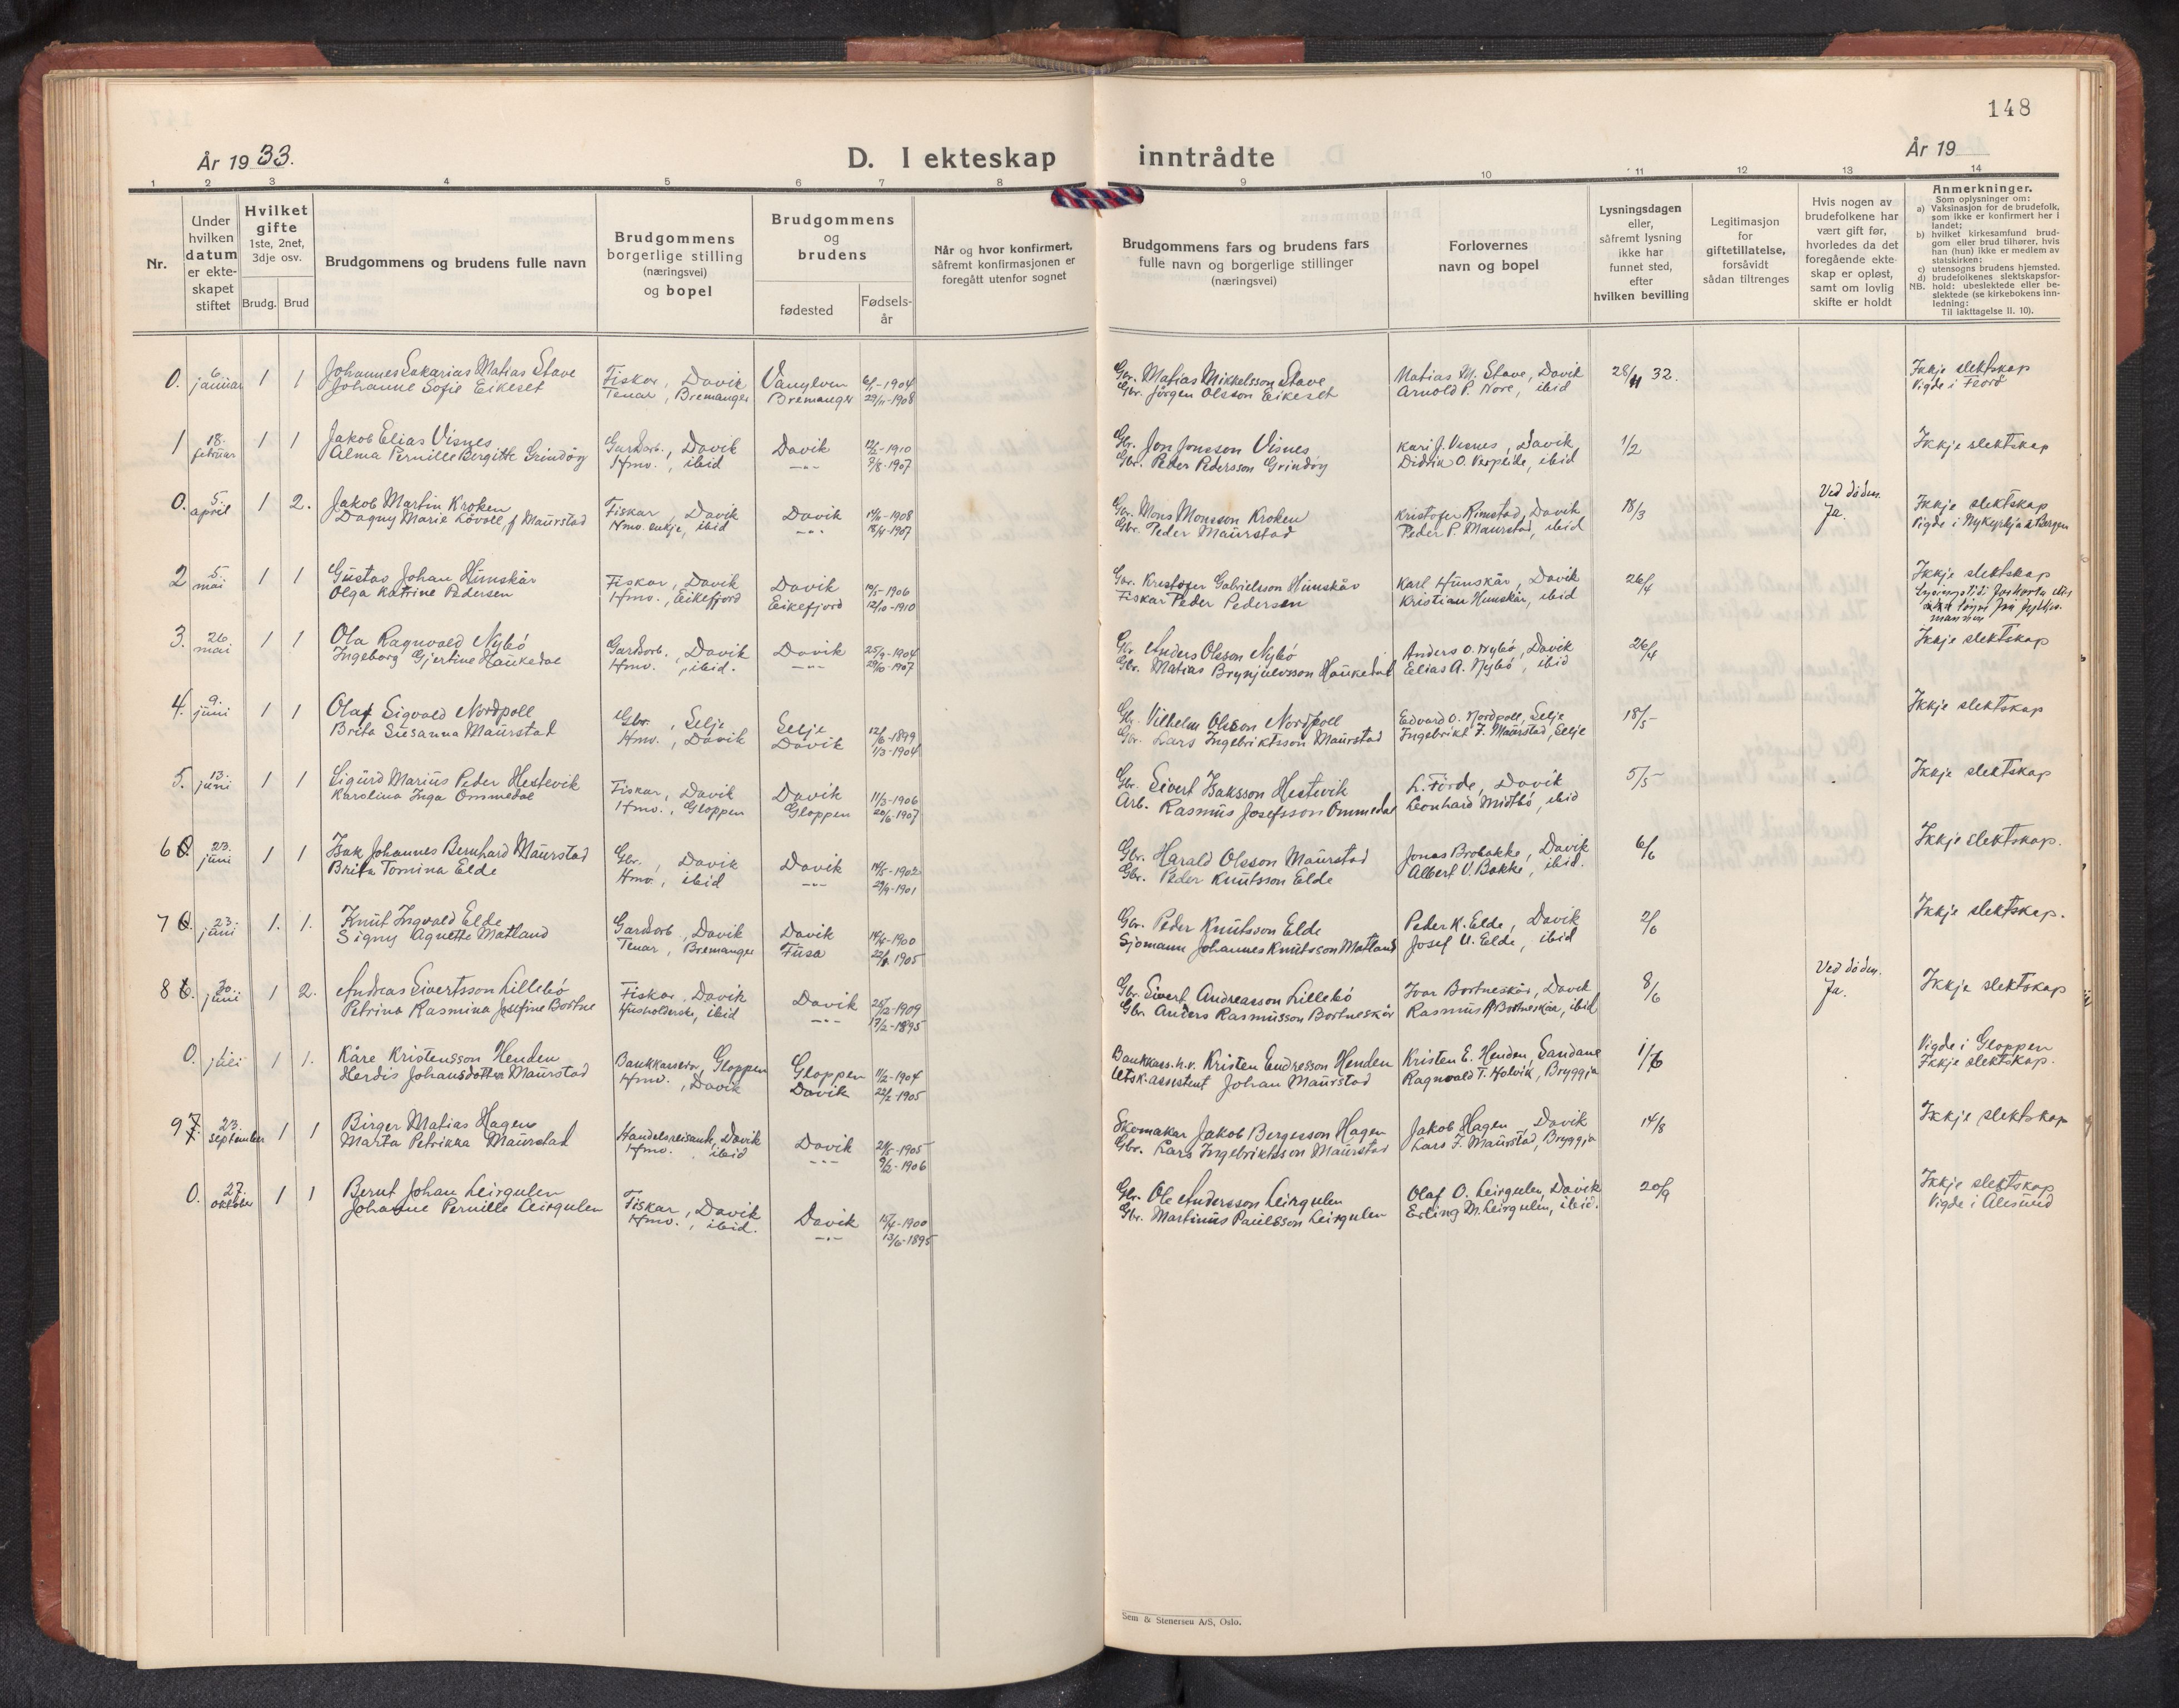 148
År 1933.
D. I ekteskap inntrådte
År 19
1 2 3 4 5 6 7 8 9 10 11 12 13 14
Nr.
Under
hvilken
datum
er ekte-
skapet
stiftet
Hvilket
gifte
1ste, 2net,
3dje osv.
Brudg. Brud
Brudgommens og brudens fulle navn
Brudgommens
borgerlige stilling
(næringsvei)
og bopel
Brudgommens
og
brudens
fødested
Fødsels-
år
Når og hvor konfirmert,
såfremt konfirmasjonen er
foregått utenfor sognet
Brudgommens fars og brudens fars
fulle navn og borgerlige stillinger
(næringsvei)
Forlovernes
navn og bopel
Lysningsdagen
eller,
såfremt lysning
ikke har
funnet sted,
efter
hvilken bevilling
Legitimasjon
for
giftetillatelse,
forsåvidt
sådan tiltrenges
Hvis nogen av
brudefolkene har
vært gift før,
hvorledes da det
foregående ekte-
skap er opløst,
samt om lovlig
skifte er holdt
Anmerkninger.
Som oplysninger om:
a) Vaksinasjon for de brudefolk,
som ikke er konfirmert her i
landet;
b) hvilket kirkesamfund brud-
gom eller brud tilhører, hvis
han (hun) ikke er medlem av
statskirken;
c) utensogns brudens hjemsted.
d) brudefolkenes slektskapsfor-
NB. hold: ubeslektede eller be-
slektede (se kirkebokens inn-
ledning:
Til iakttagelse II. 10).
0. 6. januar 1 1 Johannes Sakarias Matias Stave Fiskar, Davik Vanylven 6/1-1904 Gbr. Matias Mikkelsson Stave Matias M. Stave, Davik 28/11 32. Ikkje slektskap
Johanne Sofie Eikeset Tenar, Bremanger Bremanger 29/11-1908 Gbr. Jørgen Olsson Eikeset Arnold P. Nore, ibid Vigde i
1 18. februar 1 1 Jakob Elias Visnes Gardarb., Davik Davik 1910 Gbr. Jon Jonsson Visnes Kari J. Visnes, Davik 1/2 Ikkje slektskap
Alma Pernille Bergitte Grindøy Hmo., ibid -"- 7/8-1907 Gbr. Peder Pedersson Grindøy Didrik O. Verpeide, ibid
0. 5. april 1 2. Jakob Martin Kroken Fiskar, Davik Davik 1908 Gbr. Mons Monsson Kroken Kristofer Rimstad, Davik 18/3 Ved døden. Ikkje slektskap
Dagny Marie Løvoll f. Maurstad Hmo. enkje, ibid -"- 18/4-1907 Gbr. Peder Maurstad Peder P. Maurstad, ibid Ja. Vigde i Nykyrkja i Bergen
2 5. mai 1 1 Gustav Johan Humskår Fiskar, Davik Davik 1906 Gbr. Kristofer Gabrielsson Humskår Karl Humskår, Davik 26/4 Ikkje slektskap
Olga Katrine Pedersen Hmo., Eikefjord Eikefjord 12/10-1910 Fiskar Peder Pedersen Kristian Humskår, ibid
mannen
3. 26. mai 1 1 Ola Ragnvald Nybø Gardarb., Davik Davik 25/9-1904 Gbr. Anders Olsson Nybø Anders O. Nybø, Davik 26/4 Ikkje slektskap
Ingeborg Gjertine Haukedal Hmo., ibid. -"- 1907 Gbr. Matias Brynjulvsson Haukedal Elias A. Nybø, ibid
4. 9. juni 1 1 Olaf Sigvald Nordpoll Gbr., Selje Selje 1899 Gbr. Vilhelm Olsson Nordpoll Edvard O. Nordpoll, Selje 18/5 Ikkje slektskap
Brita Susanna Maurstad Hmo., Davik Davik 1/3-1904 Gbr. Lars Ingebriktsson Maurstad Ingebrikt J. Maurstad, Selje
5. 13. juni 1 1 Sigurd Marius Peder Hestevik Fiskar, Davik Davik 11/3-1906 Gbr. Sivert Isaksson Hestevik L. Førde, Davik 5/5 Ikkje slektskap
Karolina Inga Ommedal Hmo., Gloppen Gloppen 20/6-1907 Arb. Rasmus Josefsson Ommedal Leonhard Midtbø, ibid
6 23. juni 1 1 Isak Johannes Bernhard Maurstad Gbr., Davik Davik 14/5-1902 Gbr. Harald Olsson Maurstad Jonas Brobakke, Davik 6/6 Ikkje slektskap.
Brita Tomina Elde Hmo., ibid -"- 29/9-1901 Gbr. Peder Knutsson Elde Albert V. Bakke, ibid.
7 23. juni 1. 1. Knut Ingvald Elde Gardarb, Davik Davik 1900 Gbr. Peder Knutsson Elde Peder K. Elde, Davik 2/6 Ikkje slektskap.
Signy Agnette Matland Tenar, Bremanger Fusa 1905 Sjømann Johannes Knutsson Matland Josef U. Elde, ibid
8 30. juni 1 2. Andreas Sivertsson Lillebø Fiskar, Davik Davik 25/2-1909 Gbr. Sivert Andreasson Lillebø Ivar Bortneskår, Davik 8/6 Ved døden. Ikkje slektskap
Petrina Rasmina Josefine Bortne Husholderske, ibid -"- 17/2-1895 Gbr. Anders Rasmusson Bortneskår Rasmus A Bortneskår, ibid Ja.
0. juli 1 1. Kåre Kristensson Henden Bankkasserar, Gloppen Gloppen 11/2-1904 Bankkass. h.v. Kristen Endresson Henden Kristen E. Henden, Sandane 1/6 Vigde i Gloppen
Herdis Johansdotter Maurstad Hmo., Davik Davik 22/2-1905 Utsk. assistent Johan Maurstad Ragnvald T. Holvik, Bryggja Ikkje slektskap.
9 23. september 1 1 Birger Matias Hagen Handelsreisande, Davik Davik 1905 Skomakar Jakob Bergesson Hagen Jakob Hagen, Davik 14/8 Ikkje slektskap
Marta Petrikka Maurstad Hmo., ibid -"- 9/2-1906 Gbr. Lars Ingebriktsson Maurstad Lars J. Maurstad, Bryggja
0. 27. oktober 1 1 Bernt Johan Leirgulen Fiskar, Davik Davik 1900 Gbr. Ole Andersson Leirgulen Olaf O. Leirgulen, Davik 20/9 Ikkje slektskap
Johanne Pernille Leirgulen Hmo., ibid. -"- 13/6-1895 Gbr. Martinus Paulsson Leirgulen Erling M. Leirgulen, ibid. Vigde i Ålesund
Sem & Stenersen A/S, Oslo.